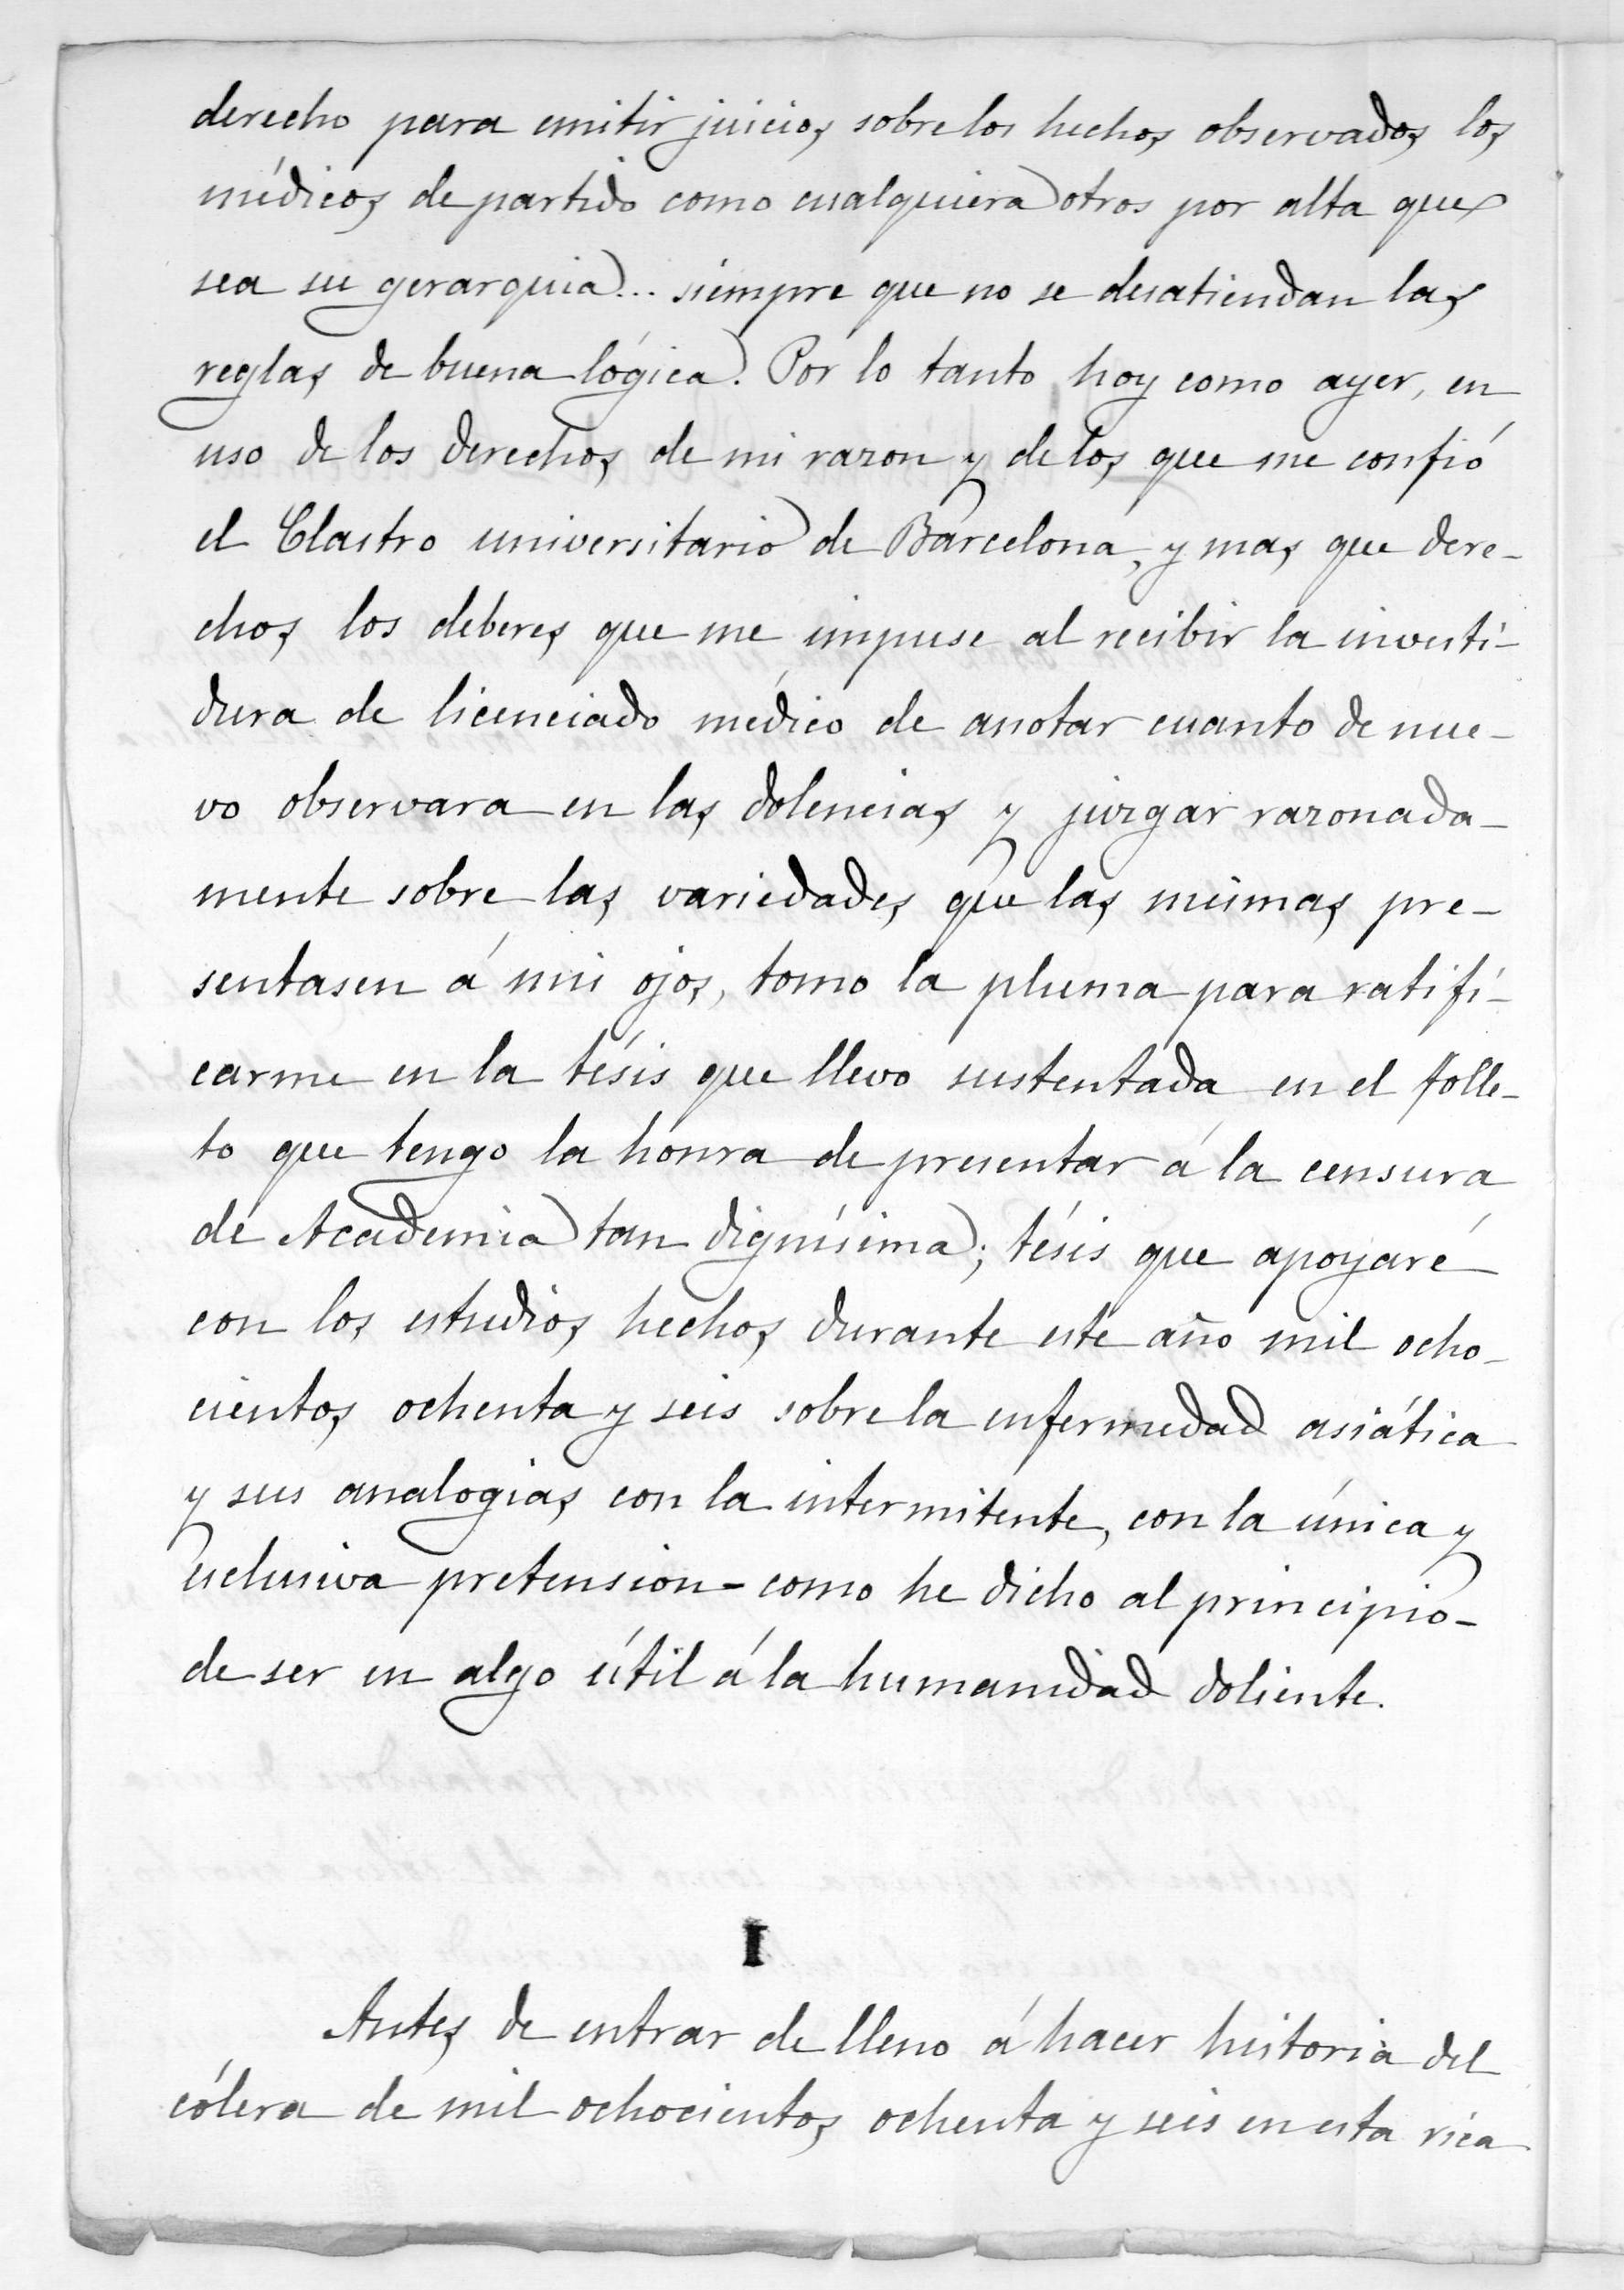 derecho para emitir juicios sobre los hechos observados los
médicos de partido como cualquiera otros por alta que
sea su gerarquia... siempre que no se desatiendan las
reglas de buena lógica. Por lo tanto hoy como ayer, en
uso de los derechos de mi razon y de los que me confió
el Clastro universitario de Barcelona, y mas que dere-
chos los deberes que me impuse al recibir la investi-
dura de licenciado médico de anotar cuanto de nue-
vo observara en las dolencias y juzgar razonada-
mente sobre las variedades que las mismas pre-
sentasen á mis ojos, tomo la pluma para ratifi-
carme en la tésis que llevo sustentada en el folle-
to que tengo la honra de presentar á la censura
de Academia tan dignísima; tésis que apoyaré
con los estudios hechos durante este año mil ocho-
cientos ochenta y seis sobre la enfermedad asiática
y sus analogias con la intermitente, con la única y
esclusiva pretension - como he dicho al principio -
de ser en algo útil á la humanidad doliente.
I
Antes de entrar de lleno á hacer historia del
cólera de mil ochocientos ochenta y seis en esta rica